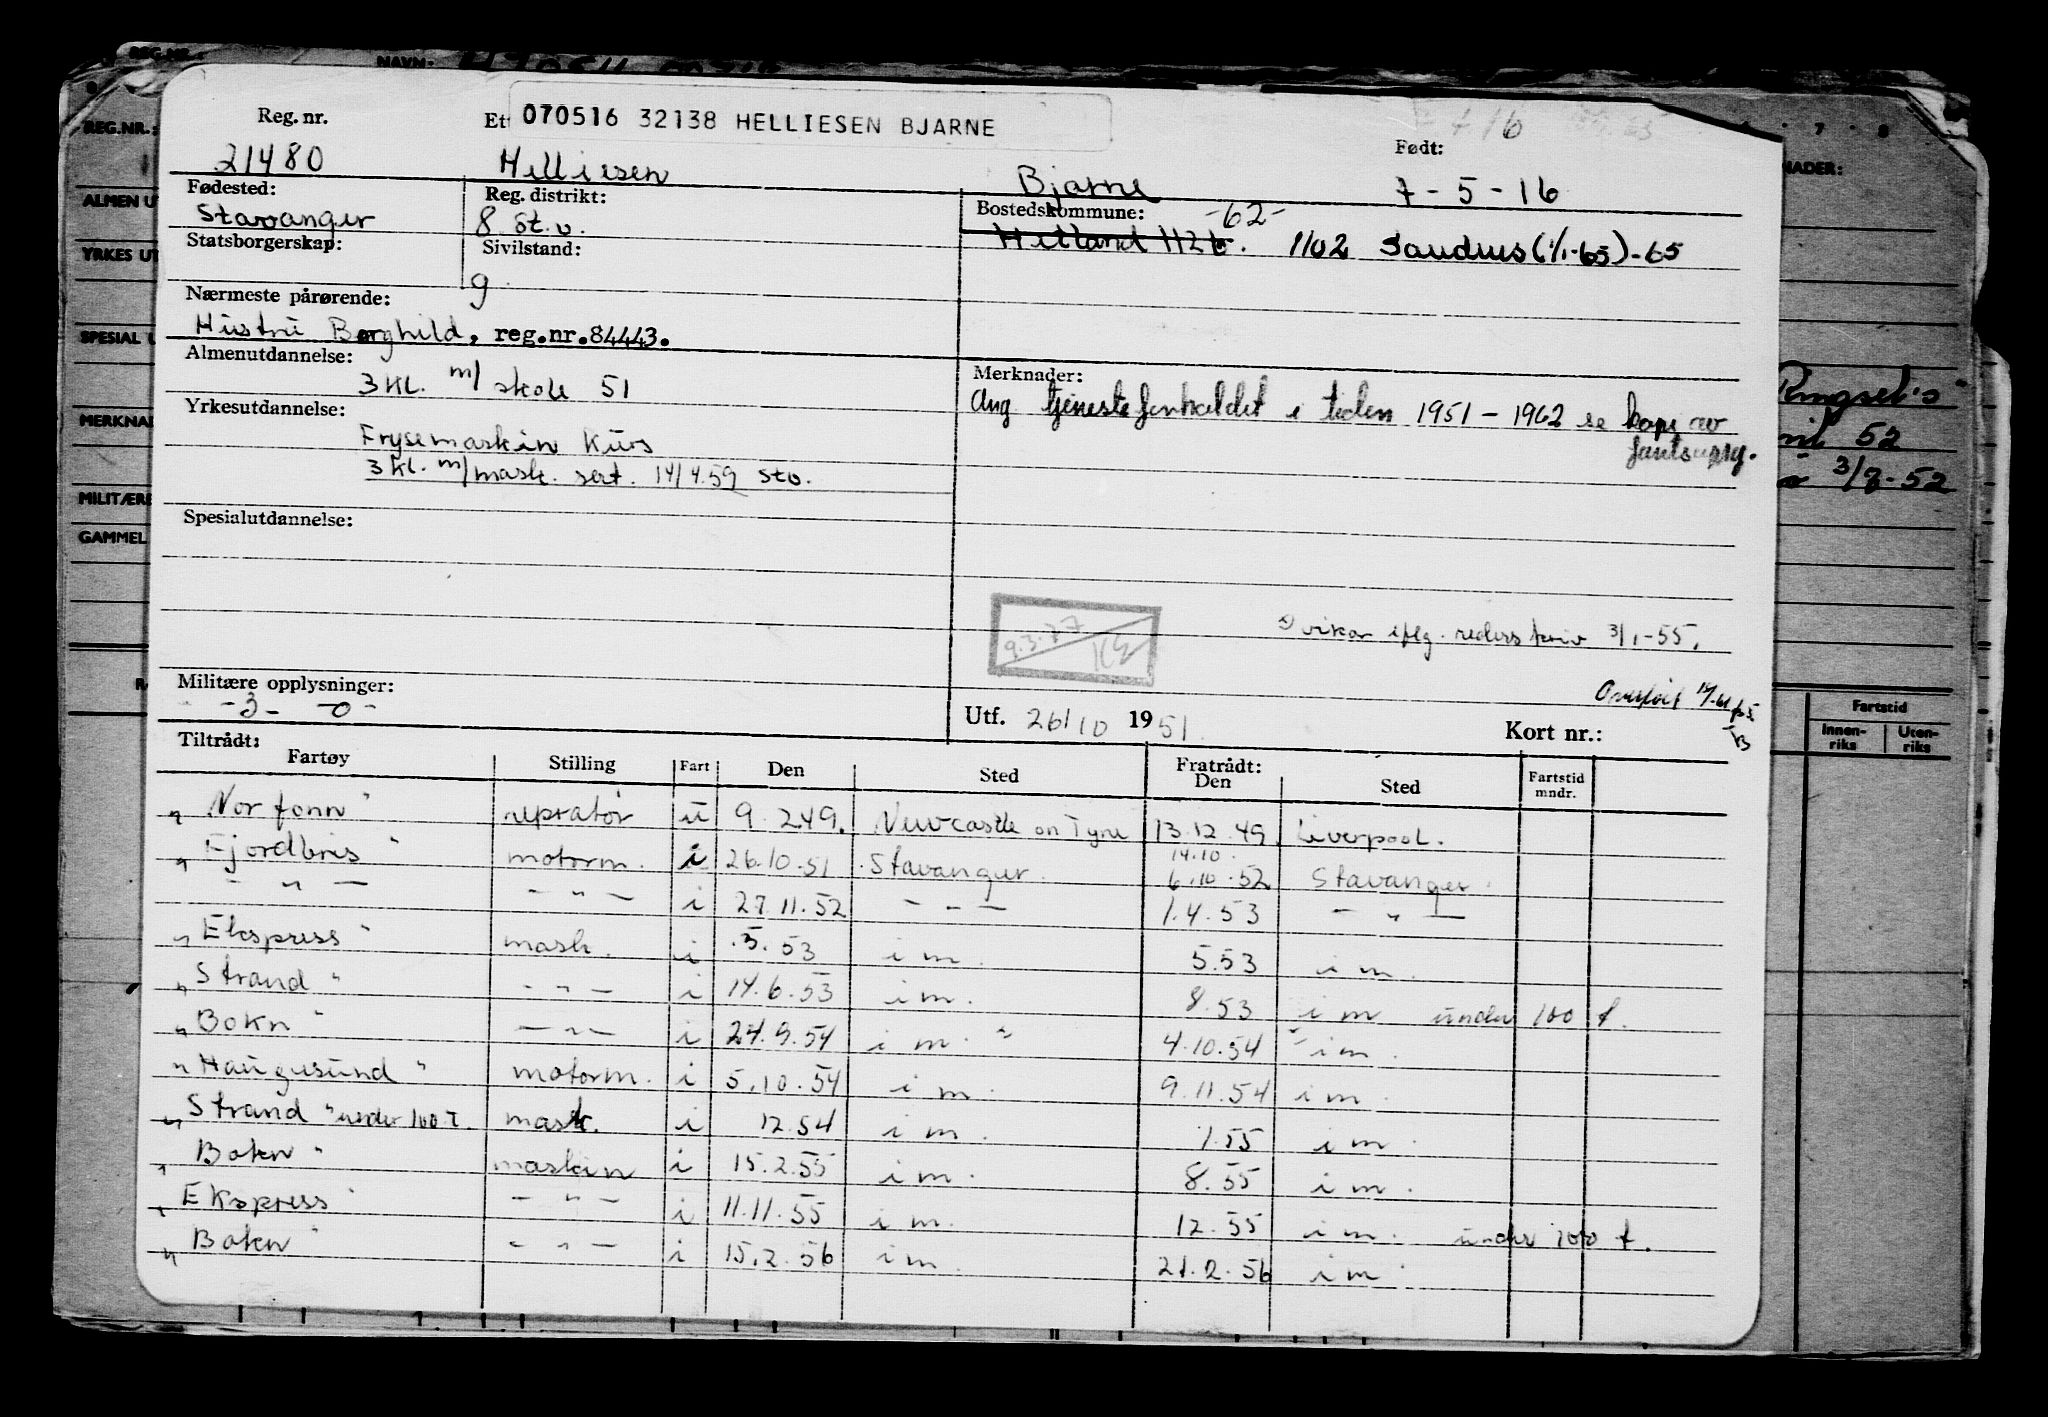 REG.NR. NAVN:
Reg. nr. Ett 070516 32138 HELLIESEN BJARNE Født:
21480 Helliesen Bjarne 7 - 5 - 16
Fødested: Reg. distrikt: Bostedskommune: -62-
Stavanger 8 St.v. Hetland 1126. 1102 Sandnes (1/1-65)-65
Statsborgerskap: Sivilstand:
g
Nærmeste pårørende:
Hustru Borghild, reg.nr.84443.
Almenutdannelse: Merknader:
3 kl. m/ skole 51 Ang tjenesteforholdet i tiden 1951 - 1962 se kopi av
Yrkesutdannelse:
Frysemaskin kurs
3 kl. m/mask. sert. 14/4.59 Sto.
Spesialutdannelse:
vikar iflg. reders skriv 3/1-55.
9.3.77
Militære opplysninger:
- 3 - 0 -
Utf. 26/10 1951. Kort nr.:
Tiltrådt: Fratrådt:
Fartøy Stilling Fart Den Sted Den Sted Fartstid mndr.
" Norfonn " repratør u 9.2.49. Newcastle on Tyne 13.12.49. Liverpool.
14.10.
" Fjordbris " motorm. i 26.10.51 Stavanger. 6.10.52 Stavanger.
- " - - " - i 27.11.52 - - - 1.4.53 - " -
" Ekspress " mask. i .5.53 i m. 5.53 i m.
" Strand " - " - i 14.6.53 i m. 8.53 i m under 100 t.
" Bokn " - " - i 24.9.54 i m. " 4.10.54 " i m.
" Haugesund " motorm. i 5.10.54 i m. 9.11.54 i m.
" Strand " under 100 T. mask. i 12.54 i m. 1.55 i m.
" Bokn " maskin i 15.2.55 i m. 8.55 i m.
" Ekspress " - " - i 11.11.55 i m. 12.55 i m. under 100 t.
" Bokn " - " - i 15.2.56 i m. 21.2.56 i m.
REG.NR.:
ALMEN U
YRKES UT
SPESIAL
MERKNAD
MILITÆRE
GAMMEL
7 8
NADER:
Ringsel's
52
3/7-52
Fartstid
Innen-riks Uten-riks